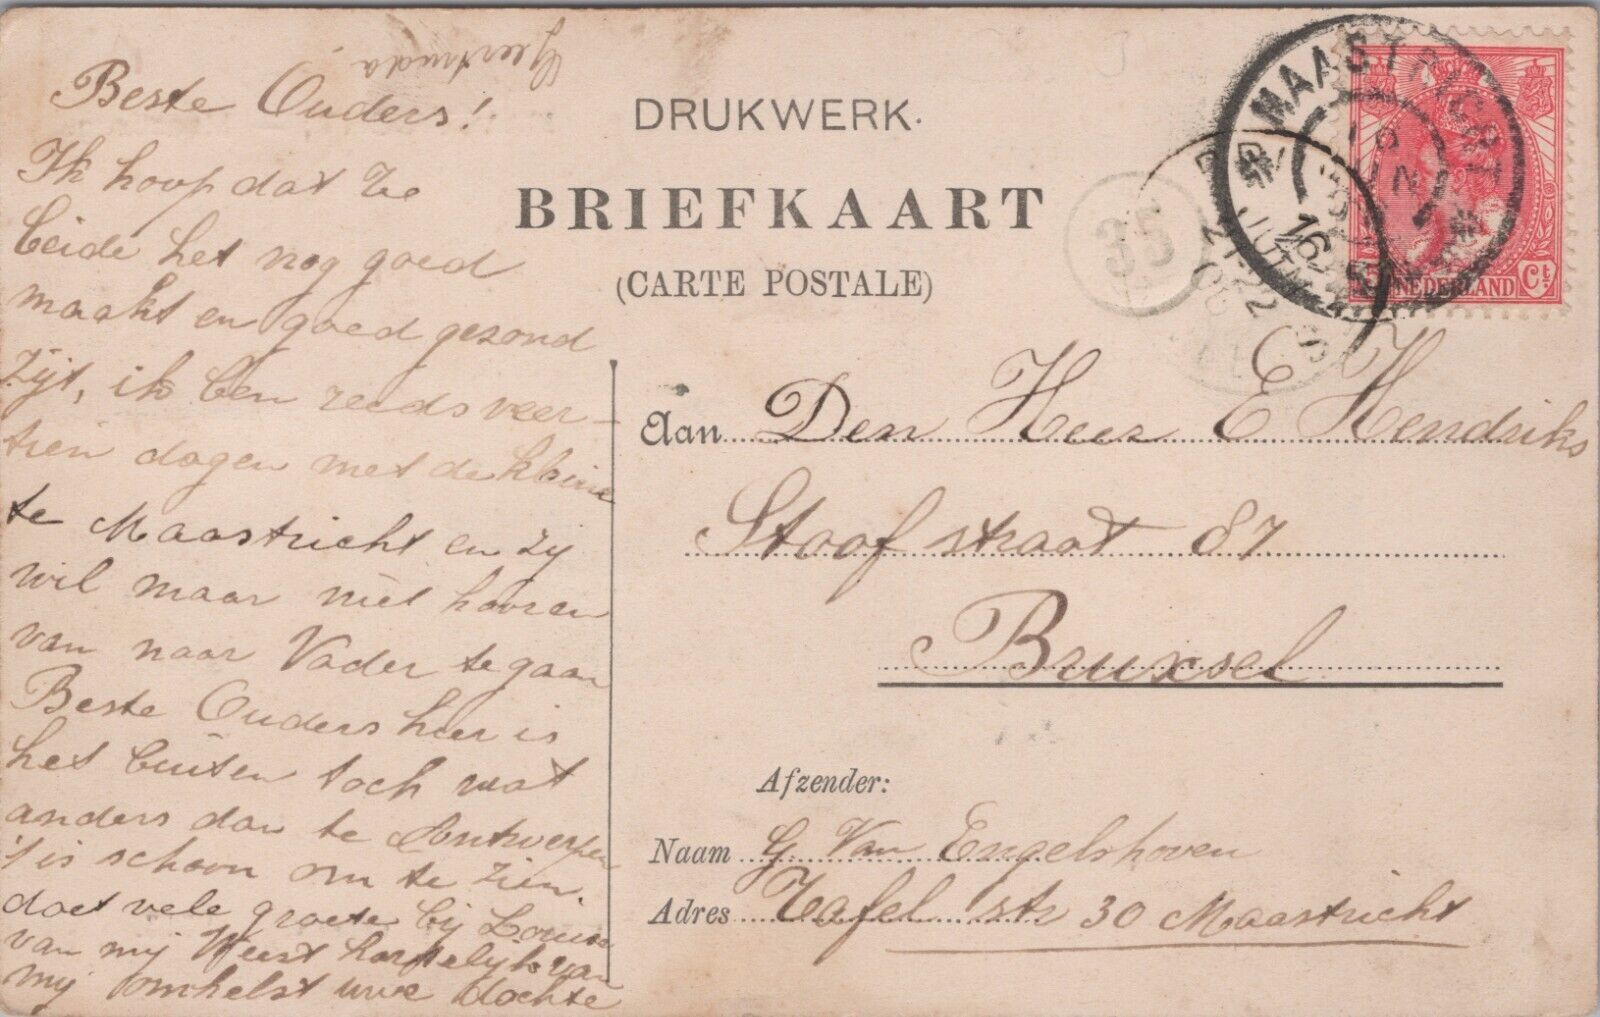 Beste Ouders!
Geertruda
Ik hoop dat Ue
beide het nog goed
maakt en goed gezond
zijt, ik ben reeds veer-
tien dagen met de kleine
te Maastricht en zij
wil maar niet hooren
van naar Vader te gaan
Beste Ouders hier is
het buiten toch wat
anders dan te Antwerpen
't is schoon om te zien.
doet vele groete bij Louis
van mij Weest hartelijk van
mij omhelst uwe dochte
DRUKWERK.
BRIEFKAART
(CARTE POSTALE)
MAASTRICHT
35
NEDERLAND
5 Ct.
Aan Den Heer E Hendriks
Stoofstraat 87
Bruxsel
Afzender:
Naam G. Van Engelshoven
Adres Tafel str 30 Maastricht